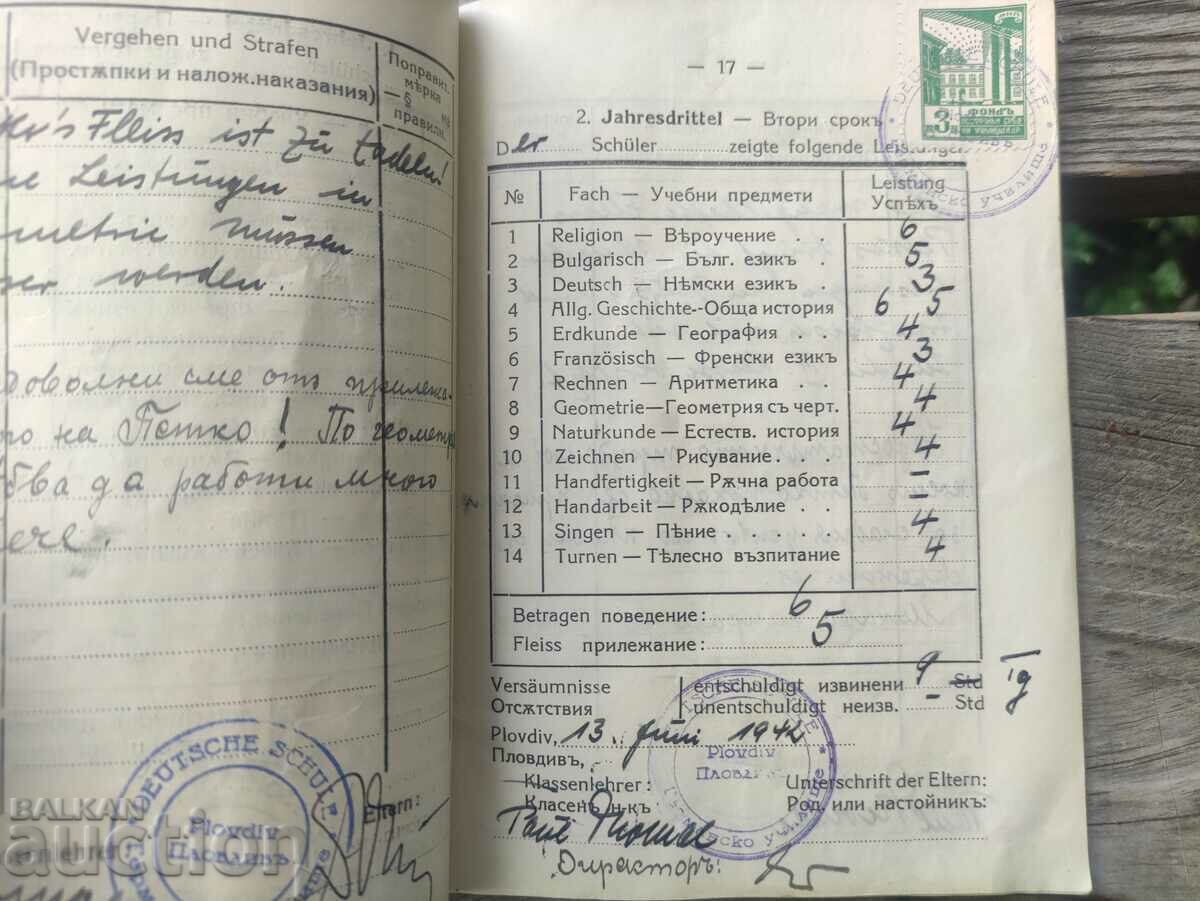 Vergehen und Strafen
(Простѫпки и налож.наказания)
Поправит.
мѣрка
§ на
правилн.
Fleiss ist zu tadeln!
Leistungen in
metrie müssen
werden.
доволни сме отъ прилежа-
на Петко! По геометр
да работи много
Eltern:
DEUTSCHE SCHULE
Plovdiv
Пловдивъ
BALKAN
auction
— 17 —
3 л.
ФОНДЪ
2. Jahresdrittel — Втори срокъ
Der Schüler zeigte folgende Leistungen
№ Fach — Учебни предмети Leistung
Успѣхъ
1 Religion — Вѣроучение . . 6
2 Bulgarisch — Бълг. езикъ . 5
3 Deutsch — Нѣмски езикъ . 3
4 Allg. Geschichte--Обща история 6 5
5 Erdkunde — География 4
6 Französisch — Френски езикъ 3
7 Rechnen — Аритметика . . 4
8 Geometrie—Геометрия съ черт. 4
9 Naturkunde — Естеств. история 4
10 Zeichnen — Рисуване. . . 4
11 Handfertigkeit — Рѫчна работа –
12 Handarbeit — Рѫкодѣлие . . –
13 Singen — Пѣние . . . . 4
14 Turnen — Тѣлесно възпитание 4
Betragen поведение: 6
Fleiss прилежание: 5
Versäumnisse entschuldigt извинени 9 Std
Отсѫтствия unentschuldigt неизв. – Std
Plovdiv, 13. Juni 1942
Пловдивъ,
Plovdiv
Пловдивъ
Klassenlehrer: Unterschrift der Eltern:
Класенъ н-къ Род. или настойникъ:
Директоръ: